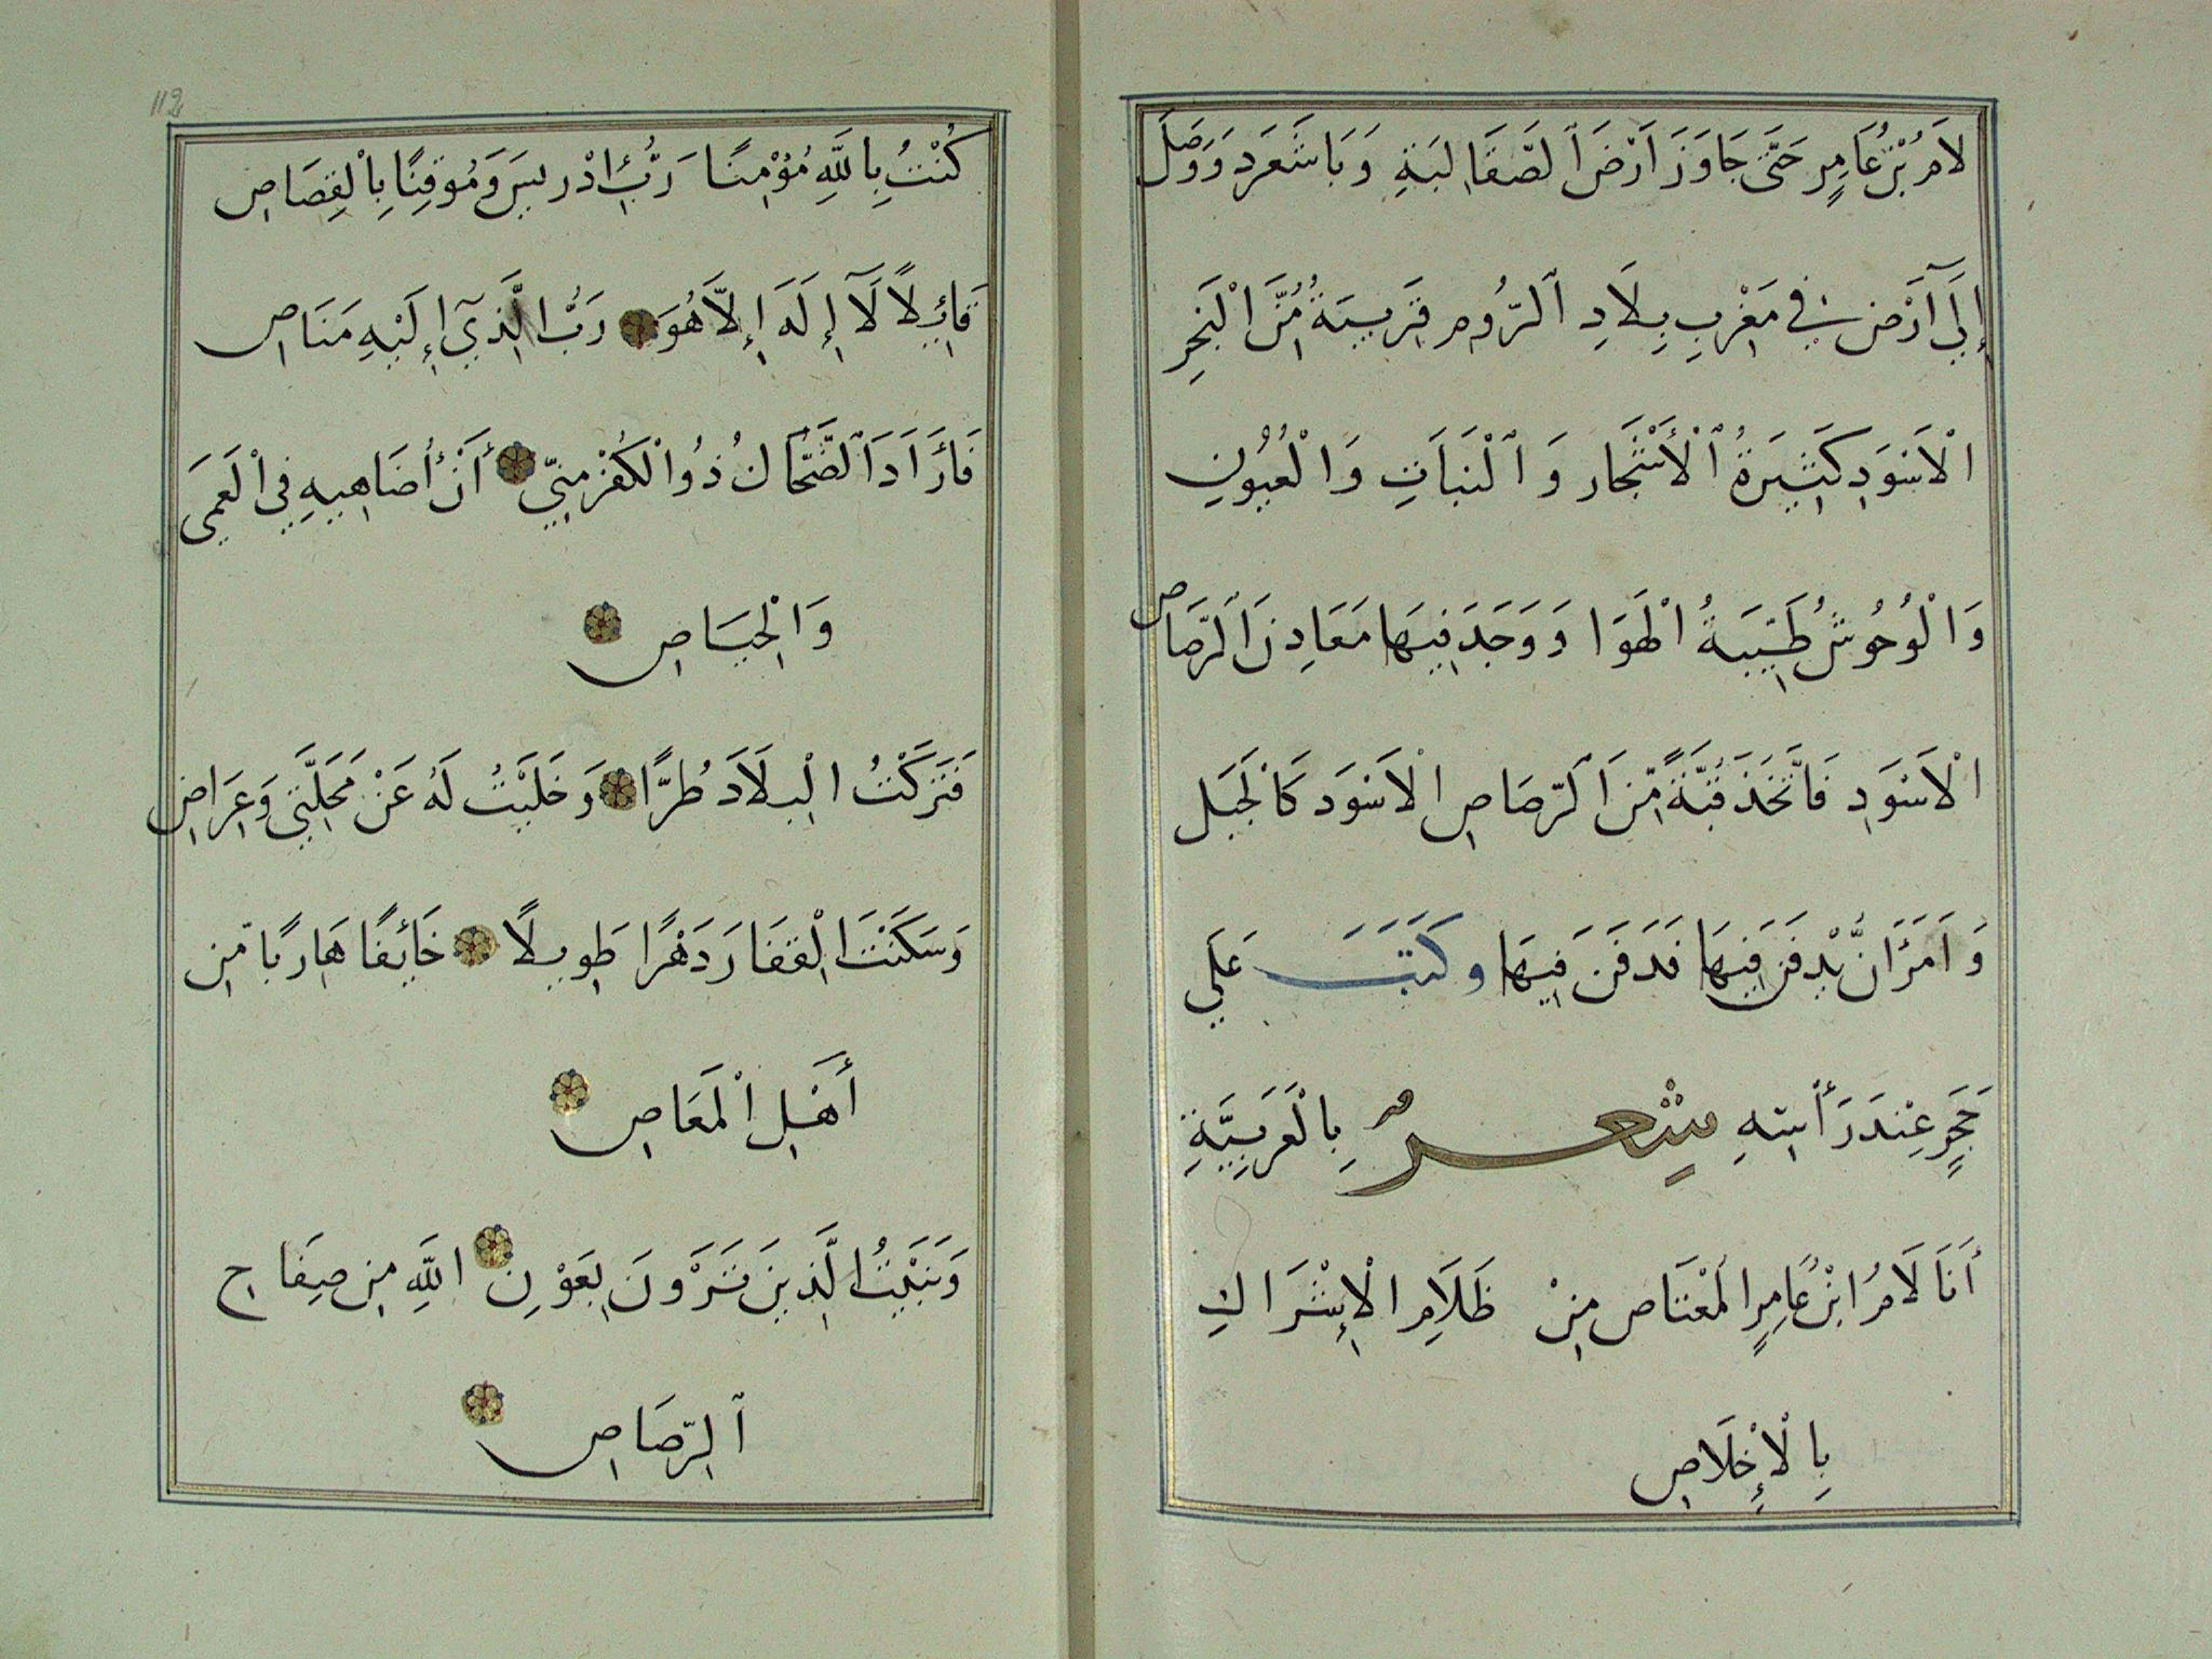 لَامُ بْنُ عَامِرٍ حَتَّى جَاوَزَ اَرْضَ ٱلصَّقَالِبَةِ وَبَاشَعَرَد وَوَصَلَ
إِلَى آرَضٍ فِي مَغْرِبِ بِلَادِ ٱلرُّومِ قَرِيبَةٌ مِّنَ الْبَحِرِ
الْاَسْوَدِ كَثِيرَةُ ٱلْأَشْجَارِ وَٱلْنَبَاتِ وَالْعُيُونِ
وَالْوُحُوشِ طَيِّبَةُ الْهَوَا وَوَجَدَ فِيهَا مَعَادِنَ ٱلرَّصَاصِ
الْاَسْوَدِ فَاتَّخَذَ قُبَّةً مِّنَ ٱلرَّصَاصِ الْاَسْوَدِ كَالْجَبَلِ
وَاَمَرَ اَنْ يُّدْفَنَ فِيهَا فَدَفَنَ فِيهَا وكَتَبَ عَلَى
حَجَرٍ عِنْدَ رَأْسِهِ شِعْرٌ بِالْعَرَبِيَّةِ
أَنَا لَامُ ابْنُ عَامِرٍ الْمُعْتَاصِ مِنْ ظَلَامِ الْإِشْرَاكِ
بِالْإِخْلَاصِ
112
كُنْتُ بِاللَّهِ مُؤْمِنًا رَبُّ إِدْرِيسَ وَمُوقِنًا بِالْقِصَاصِ
قَائِلًا لَآ إِلَهَ إِلَّا هُوَ رَبُّ الَّذِيَ إِلَيْهِ مَنَاصِ
فَاَرَادَ ٱلضَّحَّاكُ ذُوا لْكُفْرِ مِنِّي أَنْ أُضَاهِيهِ فِي الْعَمَى
وَالْحِيَاصِ
فَتَرَكْتُ الْبِلَادَ طُرًّا وَخَلَّيْتُ لَهُ عَنْ مَحَلَّتِي وَعِرَاضِ
وَسَكَنْتَ الْقِفَارَ دَهْرًا طَوِيلًا خَائِفًا هَارِبًا مِّن
أَهْلِ الْمَعَاصِ
وَبَنَيْتُ الَّذِينَ تَرَوْنَ بِعَوْنِ اللَّهِ مِن صِفَاحِ
ٱلرَّصَاصِ